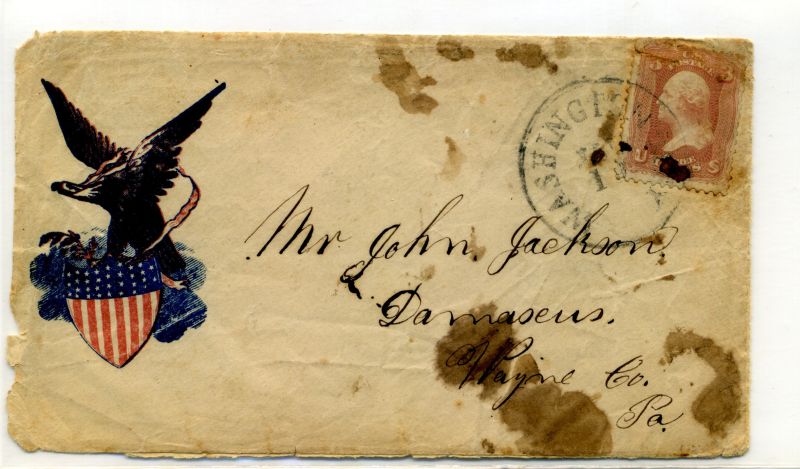 WASHINGTON
U S
Mr. John Jackson
Damascus.
Wayne Co.
Pa.